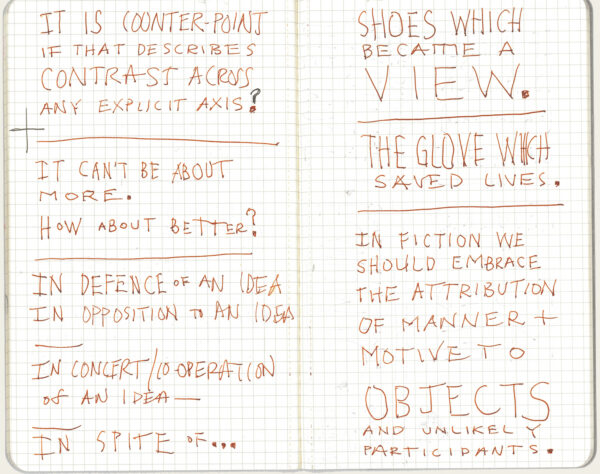 IT IS COUNTER-POINT
IF THAT DESCRIBES
CONTRAST ACROSS
ANY EXPLICIT AXIS?
IT CAN'T BE ABOUT
MORE.
HOW ABOUT BETTER?
IN DEFENCE OF AN IDEA
IN OPPOSITION TO AN IDEA
IN CONCERT/CO-OPERATION
OF AN IDEA—
IN SPITE OF...
SHOES WHICH
BECAME A
VIEW.
THE GLOVE WHICH
SAVED LIVES.
IN FICTION WE
SHOULD EMBRACE
THE ATTRIBUTION
OF MANNER +
MOTIVE TO
OBJECTS
AND UNLIKELY
PARTICIPANTS.